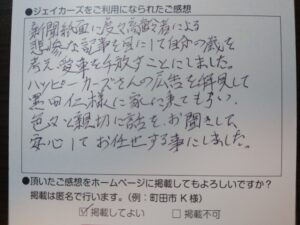 ●ジェイカーズをご利用になられたご感想
新聞紙面に度々高齢者による
悲惨な記事を目にして自分の歳を
考え愛車を手放すことにしました。
ハッピーカーズさんの広告を拝見して
黒田仁様に家に来てもらい、
色々と親切に話をお聞きして、
安心してお任せする事にしました。
●頂いたご感想をホームページに掲載してもよろしいですか?
掲載は匿名で行います。(例:町田市K様)
☑掲載してよい □掲載不可